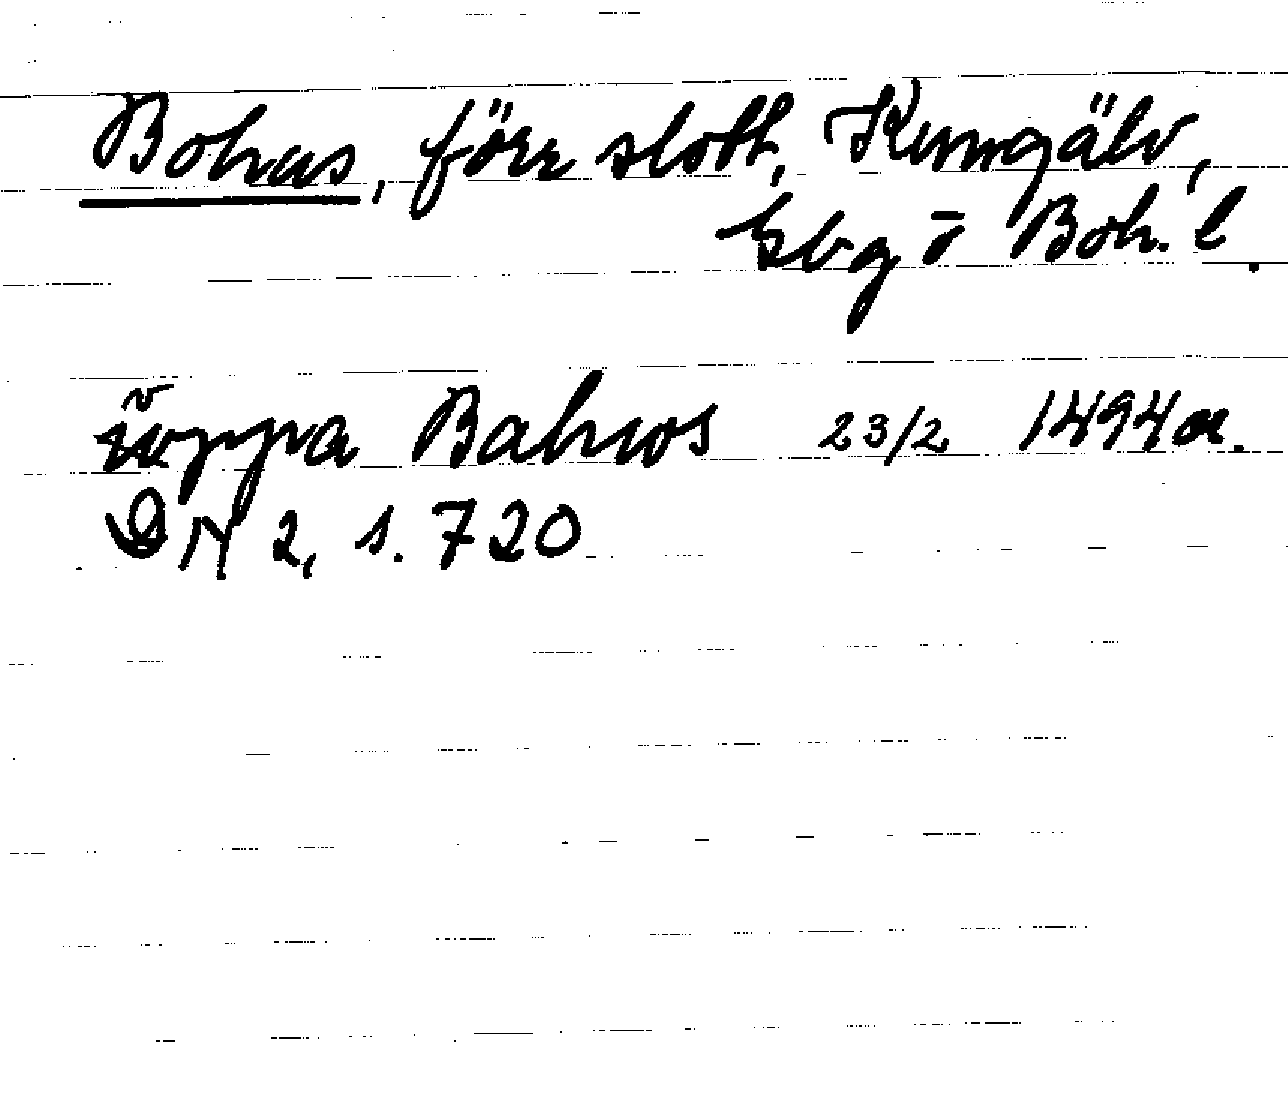 Bohus, förr slott, Kungälv,
Gbg o Boh. l.
ŭppa Bahws 23/2 1494 or.
DN 2, s. 720